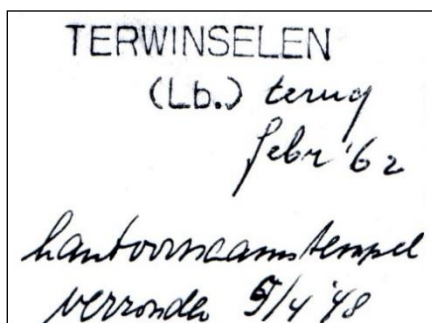 TERWINSELEN
(Lb.) terug
febr '62
kantoornaamstempel
verzonden 5/4 '48